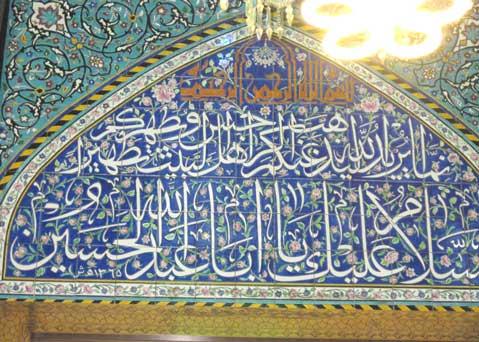 بسم الله الرحمن الرحیم
انما یرید الله لیذهب عنکم الرجس اهل البیت و یطهرکم تطهیرا
السلام علیک یا ابا عبد الله الحسین